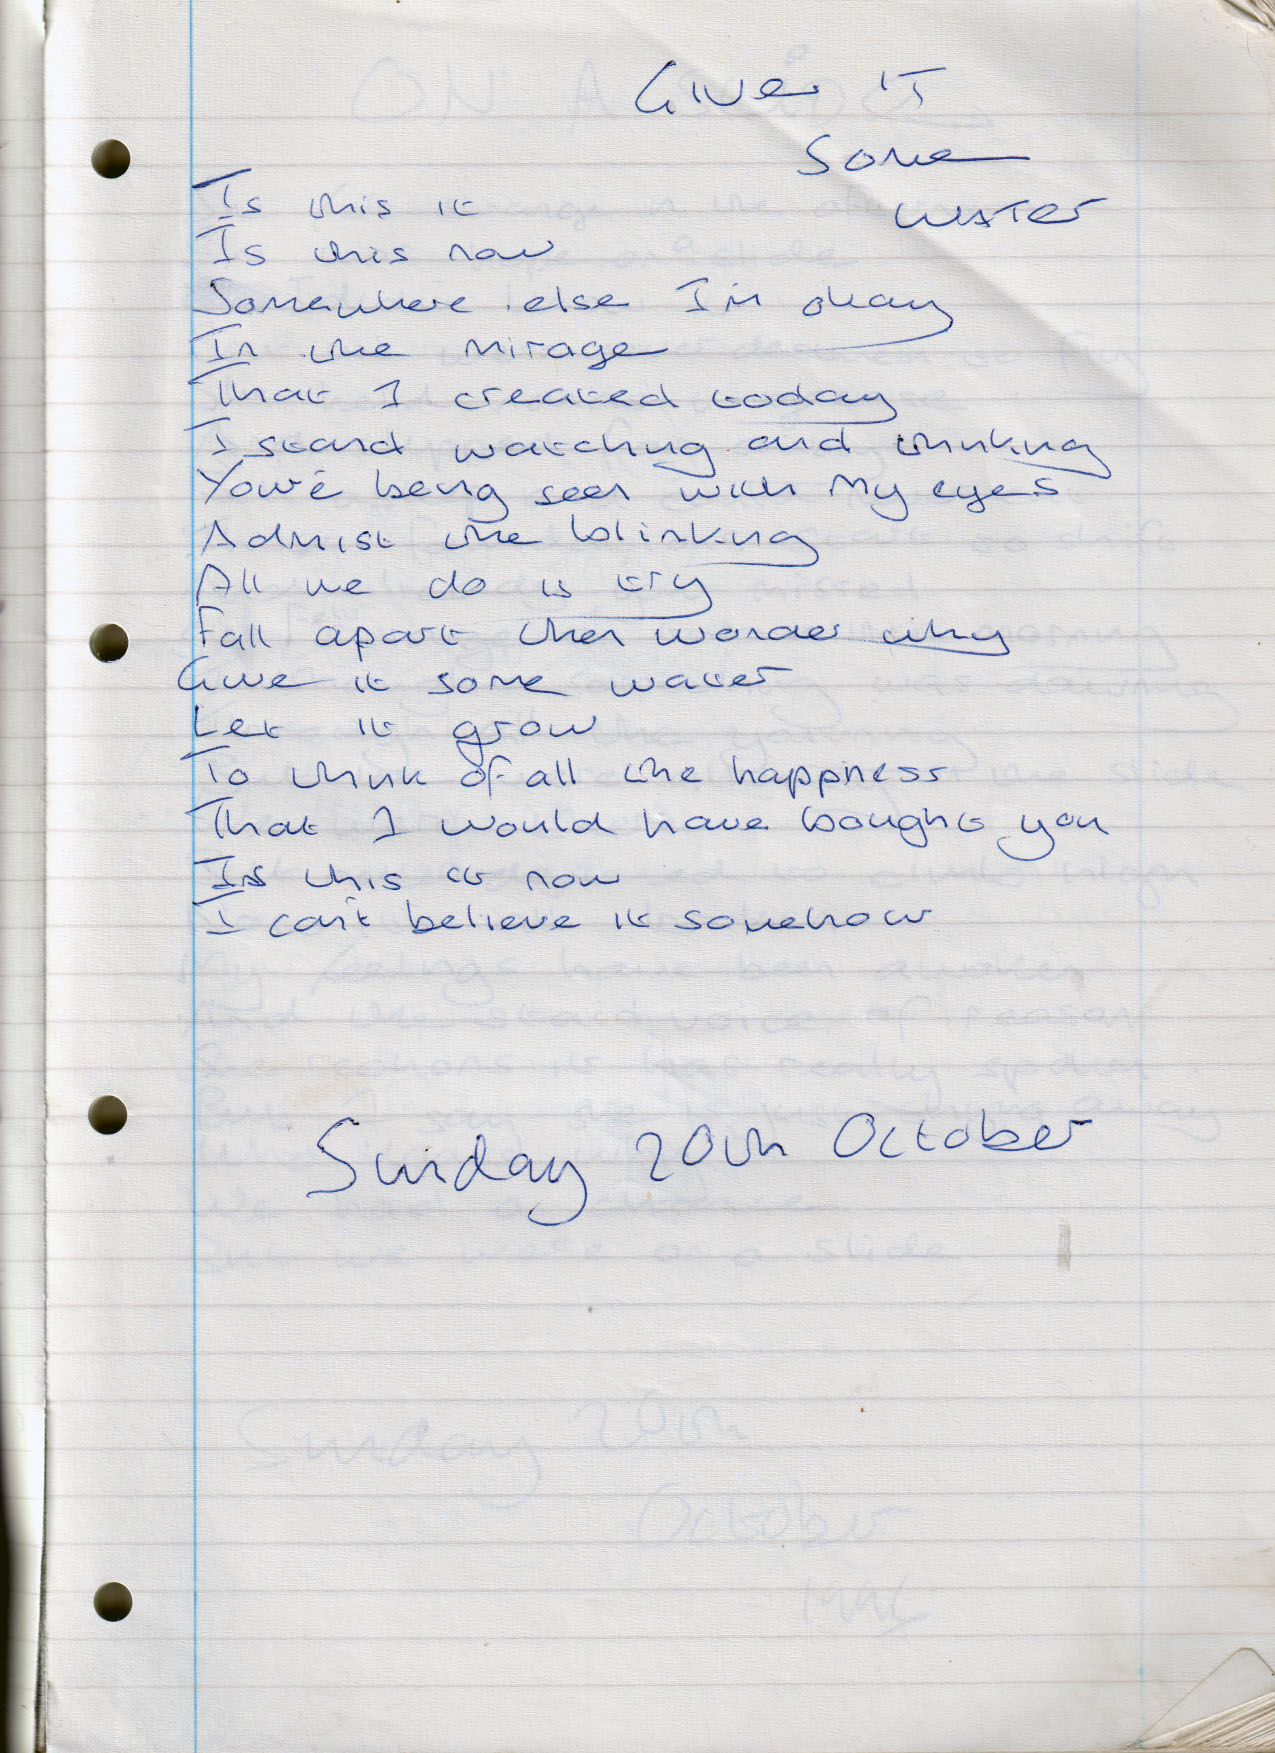 GIVE IT
SOME
WATER
Is this it
Is this now
Somewhere else I'm okay
In the mirage
That I created today
I stand watching and thinking
You're being seen with my eyes
Admist the blinking
All we do is try
Fall apart then wonder why
Give it some water
Let it grow
To think of all the happiness
That I would have bought you
Is this it now
I can't believe it somehow
Sunday 20th October